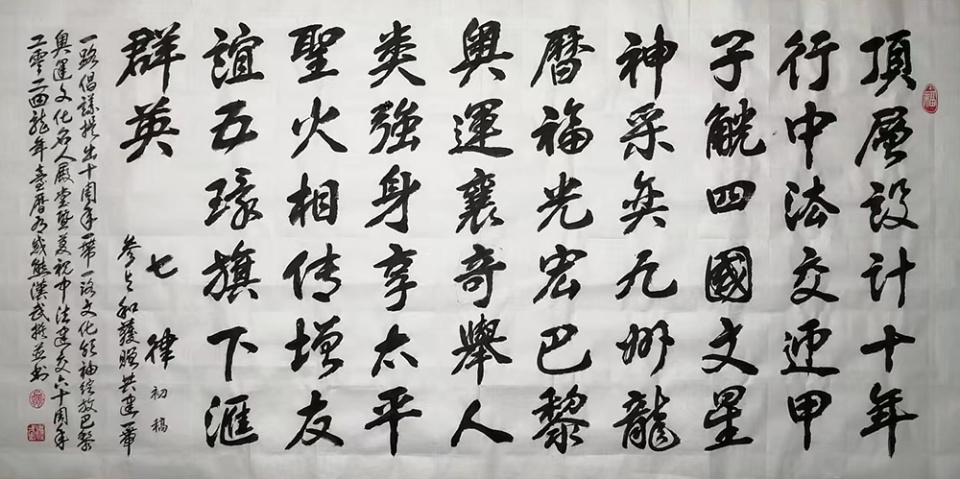 頂層设计十年
行中法交迎甲
子觥四國文星
神采奕九州龍
曆福光宏巴黎
奥運襄奇舉人
类強身享太平
聖火相传增友
誼五環旗下滙
群英
七律初稿
参与和獲赠共建一带
一路倡議提出十周年一带一路文化领袖绽放巴黎
奥運文化名人殿堂暨慶祝中法建交六十周年
二零二四龍年臺曆有感熊漢武撰並书
福